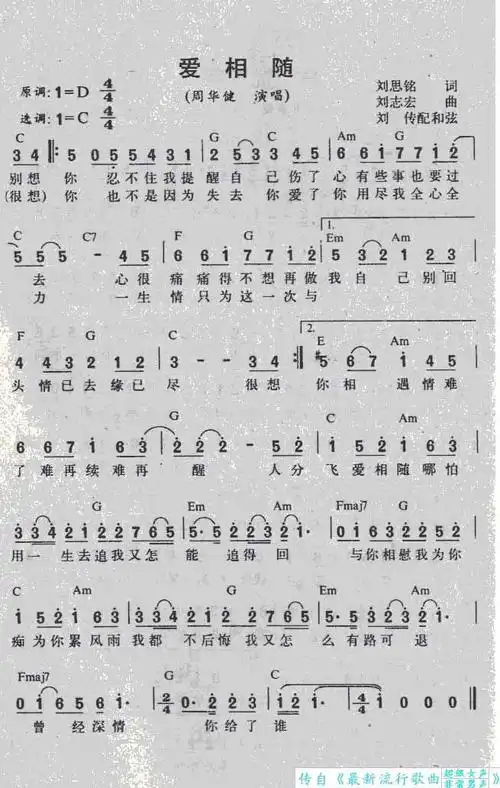 爱相随
(周华健 演唱)
原调:1=D 4/4
选调:1=C 4/4
刘思铭 词
刘志宏 曲
刘 传配和弦
C G Am G
3 4 5 0 5 5 4 3 1 2 5 3 3 4 5 6 6 1 7 1 1 7 1 2
别想你忍不住我提醒自己伤了心有些事也要过
(很想)你也不是因为失去你爱了你用尽我全心全
C C7 F G Em Am
1.
5 5 5 - 4 5 6 6 1 7 7 1 2 5 3 2 1 2 3
去心很痛痛得不想再做我自己别回
力一生情只为这一次与
F G C E Am
2.
4 4 3 2 1 2 3 - - 3 4 #5 6 7 1 4 5
头情已去缘已尽很想你相遇情难
G C
6 6 7 1 6 3 2 2 2 - 5 4 5 2 1 6 3
了难再续难再醒人分飞爱相随哪怕
G Em Am Fmaj7 G
3 3 4 2 1 2 2 7 7 6 5 5 5 3 2 1 0 1 6 3 2 2 5 2
用一生去追我又怎能追得回与你相慰我为你
C Am G Em Am
1 5 2 1 6 3 3 3 4 2 1 2 2 7 6 5 5 3 2 3 2 1
痴为你累风雨我都不后悔我又怎么有路可退
Fmaj7 G C
0 1 6 5 6 1 2/4 0 2 2 3 1 2 1 4/4 1 0 0 0
曾经深情你给了谁
传自《最新流行歌曲 超级女声 非常男声》